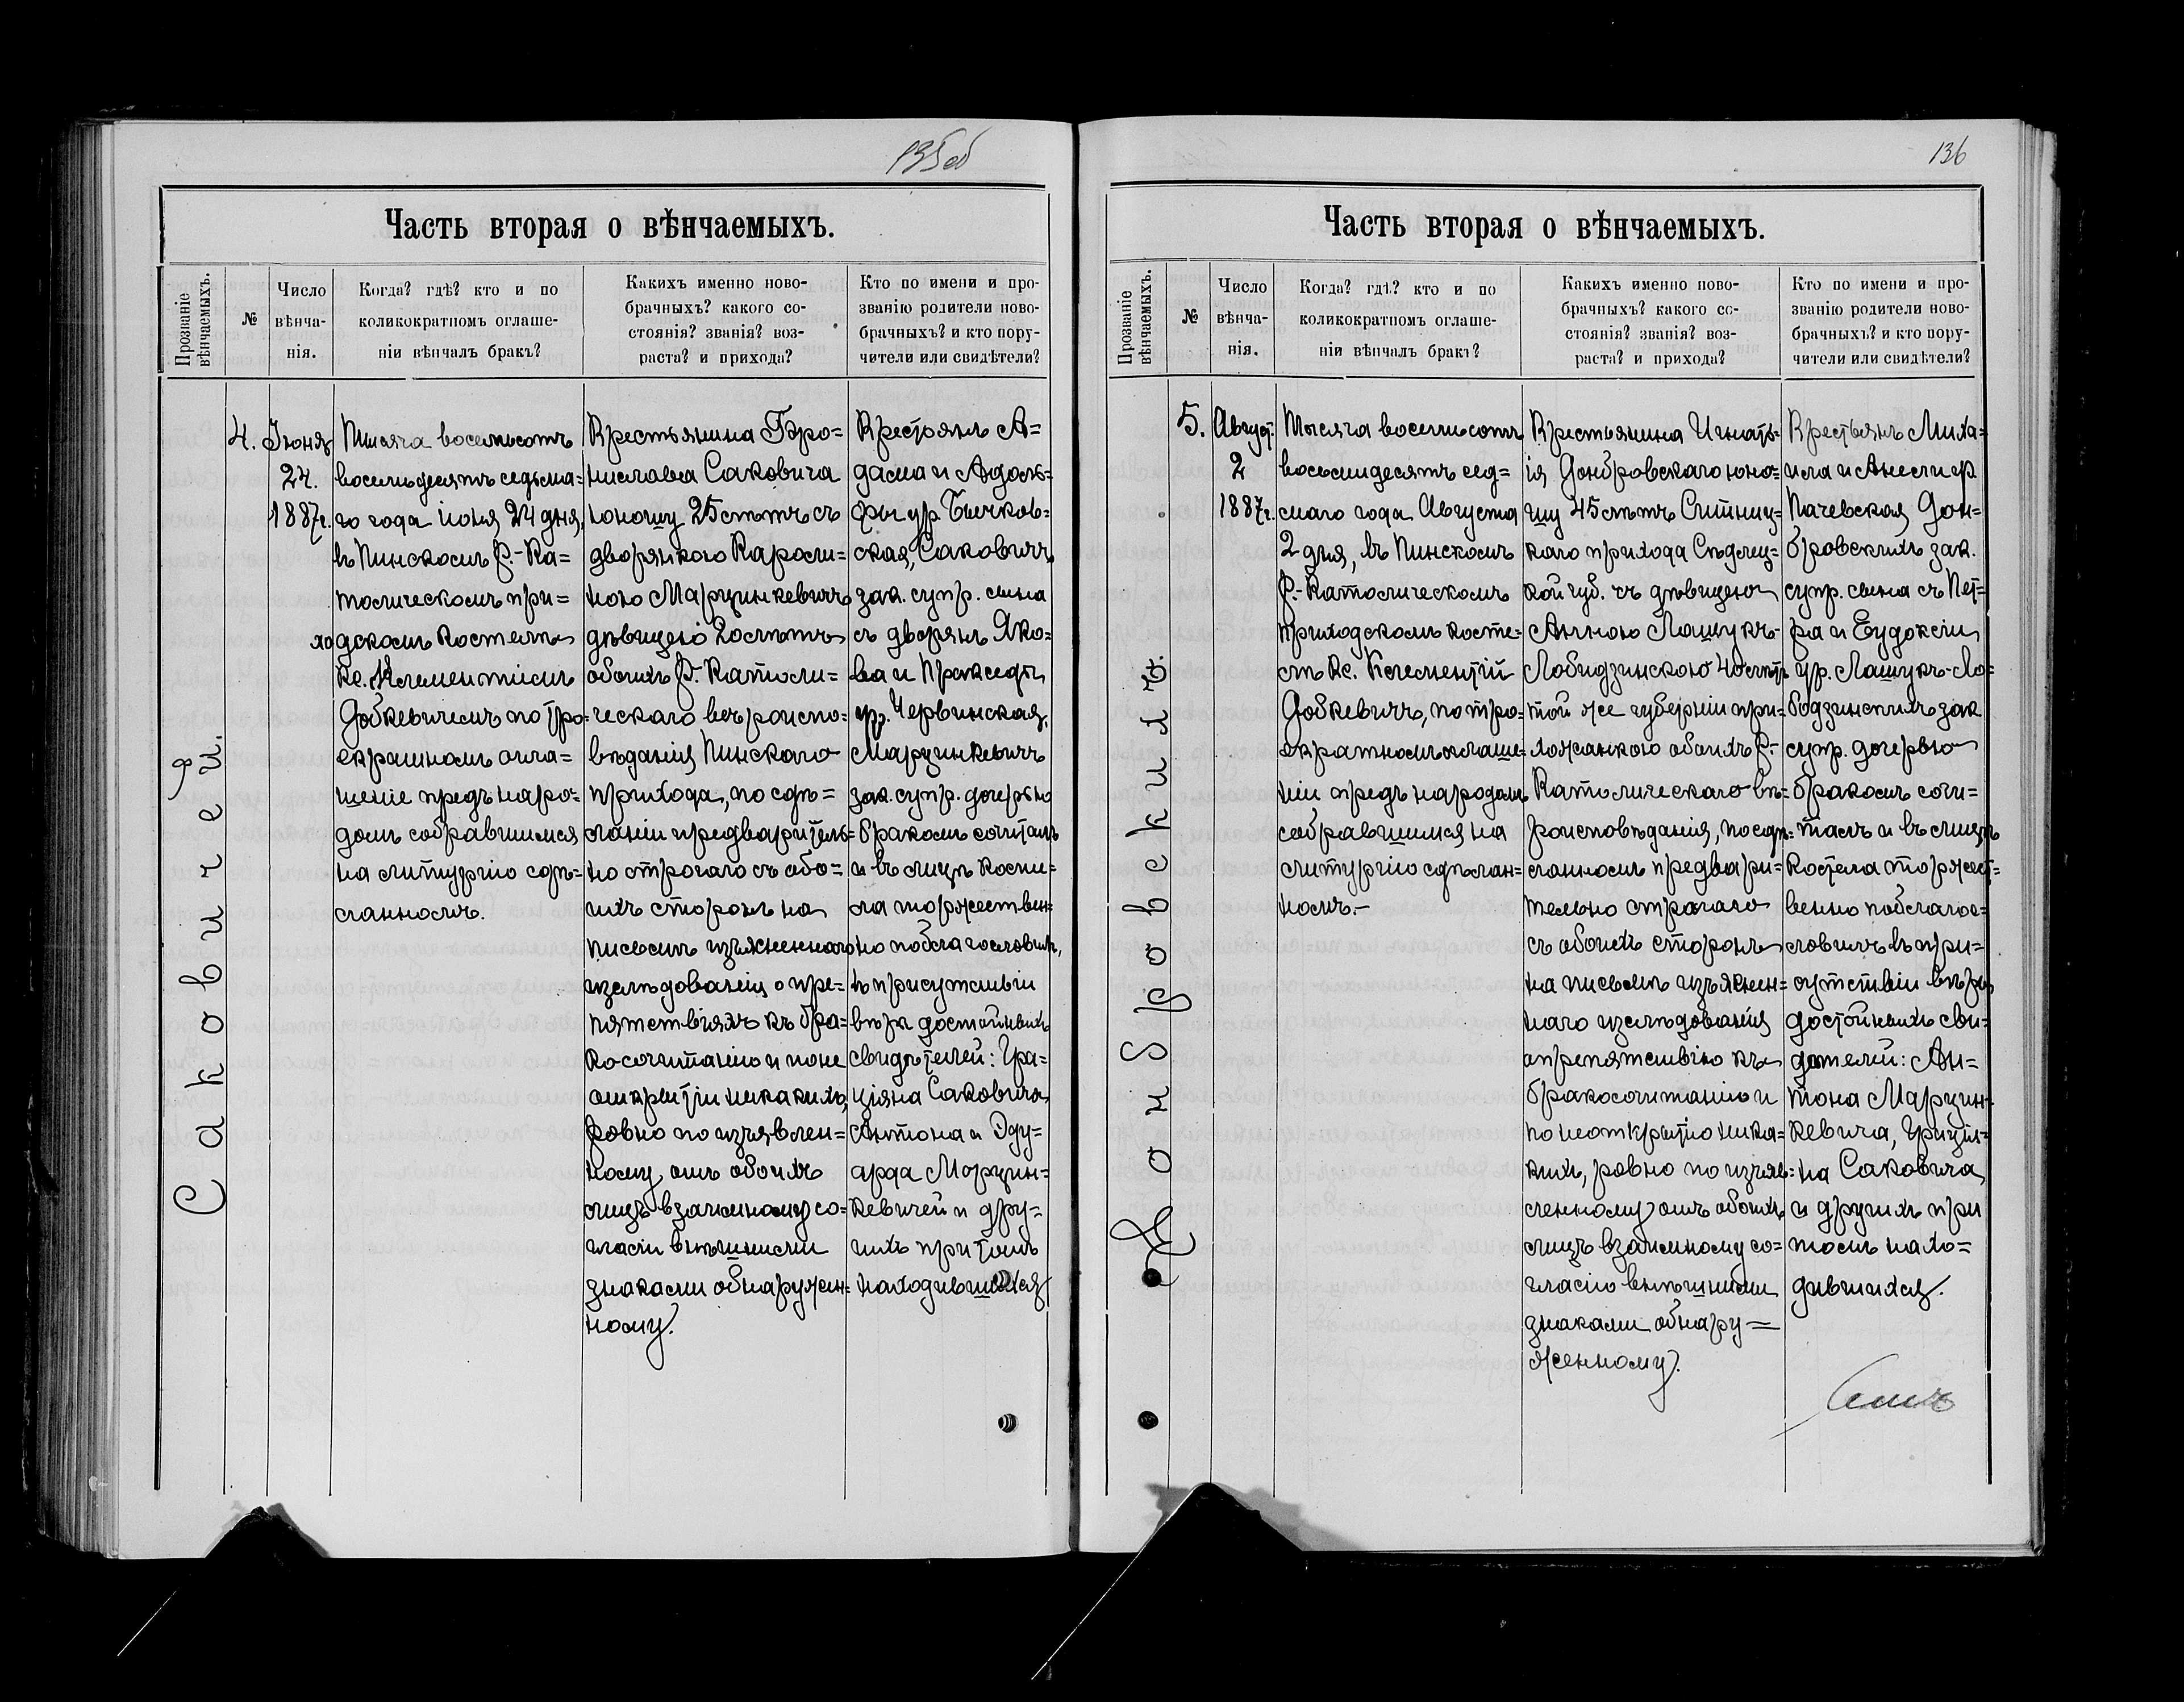 135об
Часть вторая о вѣнчаемыхъ.
Прозваніе
вѣнчаемыхъ.
№
Число
вѣнча-
нія.
Когда? гдѣ? кто и по
коликократномъ оглаше-
ніи вѣнчалъ бракъ?
Какихъ именно ново-
брачныхъ? какого со-
стоянія? званія? воз-
раста? и прихода?
Кто по имени и про-
званію родители ново-
брачныхъ? и кто пору-
чители или свидѣтели?
Саковичеи.
4.
Іюня
24.
1887г.
Тысяча восемьсотъ
восемьдесятъ седьма=
го года іюня 24 дня,
въ Пинскомъ Р.-Ка=
толическомъ при=
ходскомъ костелѣ
Кс. Климентіемъ
Добкевичемъ по тро=
екратномъ огла=
шеніе предъ наро=
домъ собравшимся
на литургію сдѣ=
ланномъ.
Крестьянина Бро=
нислава Саковича
юношу 25 лѣтъ съ
дворянкою Кароли=
ною Марцинкевичъ
дѣвицею 20 лѣтъ
обоихъ Р. Католи=
ческаго вѣроиспо=
вѣданія Пинскаго
прихода, по сдѣ=
ланіи предваритель=
но строгаго съ обо=
ихъ сторонъ на
письмѣ изъясненнаго
изслѣдованія о пре=
пятствіяхъ къ бра=
косочитанію и по не
открытіи никакихъ,
ровно по изъявлен=
ному отъ обоихъ
лицъ взаимному со=
гласіи внѣшними
знаками обнаружен=
ному.
Крестьянъ А=
дама и Адоль=
фы ур. Бычков=
ская, Саковичъ
зак. супр. сына
съ дворянъ Яко=
ва и Пракседы
ур. Червинская,
Марцинкевичъ
зак. супр. дочерью
бракомъ сочиталъ
и въ лицѣ косте=
ла торжествен=
но поблагословилъ,
въ присутствіи
вѣры достойныхъ
свидѣтелей: Гра=
ціяна Саковича,
Антона и Эду=
арда Марцин=
кевичей и дру=
гихъ при томъ
находившихся
136
Часть вторая о вѣнчаемыхъ.
Прозваніе
вѣнчаемыхъ.
№
Число
вѣнча-
нія.
Когда? гдѣ? кто и по
коликократномъ оглаше-
ніи вѣнчалъ бракъ?
Какихъ именно ново-
брачныхъ? какого со-
стоянія? званія? воз-
раста? и прихода?
Кто по имени и про-
званію родители ново-
брачныхъ? и кто пору-
чители или свидѣтели?
Домбровскихъ.
5.
Август.
2
1887г.
Тысяча восемьсотъ
восемьдесятъ сед=
смаго года Августа
2 дня, въ Пинскомъ
Р.-Католическомъ
приходскомъ косте=
лѣ Кс. Климентій
Добкевичъ, по тро=
екратномъ оглаше=
ніи предъ народомъ
собравшимся на
литургію сдѣлан=
номъ.-
Крестьянина Игнать=
ія Домбровскаго юно=
шу 45 лѣтъ Ситниц=
каго прихода Сѣдлец=
кой губ. съ дѣвицею
Анною Лашукъ-
Лободзинскою 40 лѣтъ
той же губерніи при=
хожанкою обоихъ Р.-
Католическаго вѣ=
роисповѣданія, по сдѣ=
ланномъ предвари=
тельно строгаго
съ обоихъ сторонъ
на письмѣ изъяснен=
наго изслѣдованія
о препятствію къ
бракосочитанію и
по неоткрытію ника=
кихъ, ровно по изъяв=
ленному отъ обоихъ
лицъ взаимному со=
гласію внѣшними
знаками обнару=
женному.
Крестьянъ Миха=
ила и Анели ур.
Пачевская Дом=
бровскихъ зак.
супр. сына съ Пет=
ра и Евдокіи
ур. Лашукъ-Ло=
бодзинскихъ зак
супр. дочерью
бракомъ сочи=
талъ и въ лицѣ
костела торжест=
венно поблагос=
ловилъ въ при=
сутствіи вѣры
достойныхъ сви=
детелей: Ан=
тона Марцин=
кевича, Граціа=
на Саковича
и другихъ при
томъ нахо=
дившихся.